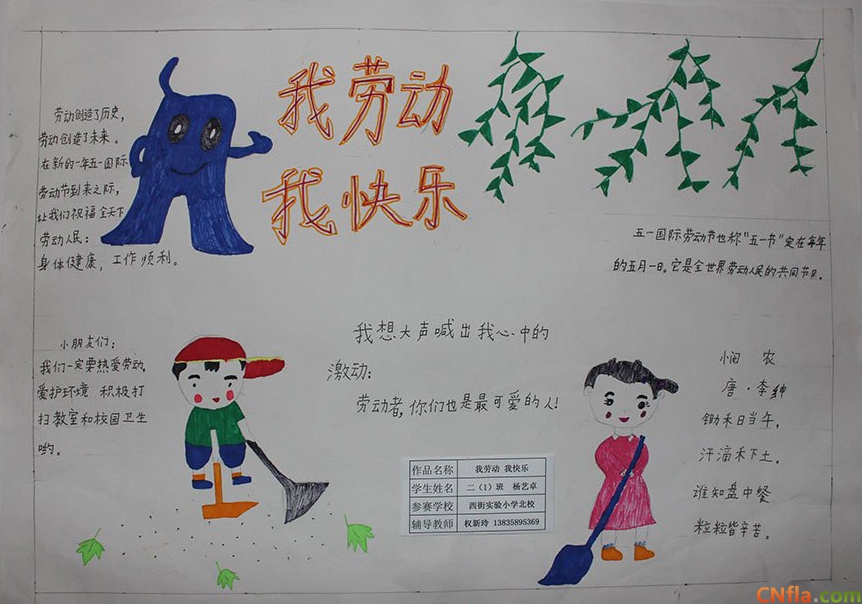 我劳动
我快乐
劳动创造了历史,
劳动创造了未来。
在新的一年五一国际
劳动节到来之际,
让我们祝福全天下
劳动人民:
身体健康,工作顺利。
五一国际劳动节也称"五一节"定在每年
的五月一日。它是全世界劳动人民的共同节日。
小朋友们:
我们一定要热爱劳动,
爱护环境 积极打
扫教室和校园卫生
哟。
我想大声喊出我心中的
激动:
劳动者,你们也是最可爱的人!
悯 农
唐·李绅
锄禾日当午,
汗滴禾下土。
谁知盘中餐
粒粒皆辛苦。
作品名称 我劳动 我快乐
学生姓名 二(1)班 杨艺卓
参赛学校 西街实验小学北校
辅导教师 权新玲 13835895369
CNfla.com